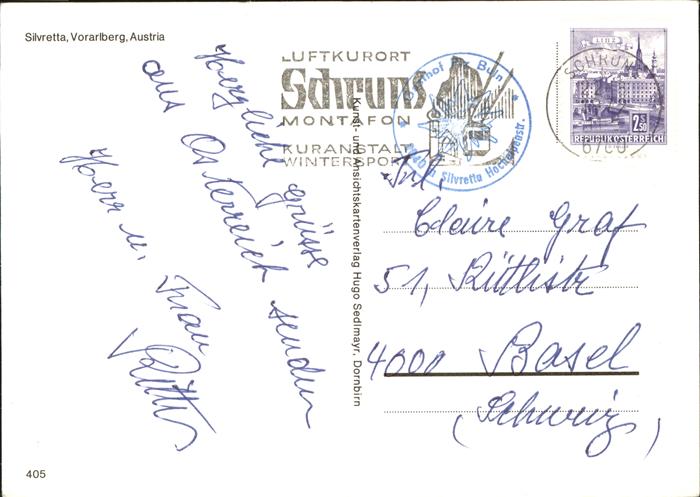 Silvretta, Vorarlberg, Austria
Herzliche Grüsse
aus Österreich senden
Herr u. Frau
LUFTKURORT
Schruns
MONTAFON
KURANSTALT
WINTERSPORT
Piz Buin
Silvretta Hochalpenstr.
SCHRUNS
6780
LINZ
2.50
REPUBLIK ÖSTERREICH
Kunst- und Ansichtskartenverlag Hugo Sedlmayr, Dornbirn
Frl.
Claire Graf
51, Rütlistr.
4000 Basel
(Schweiz)
405